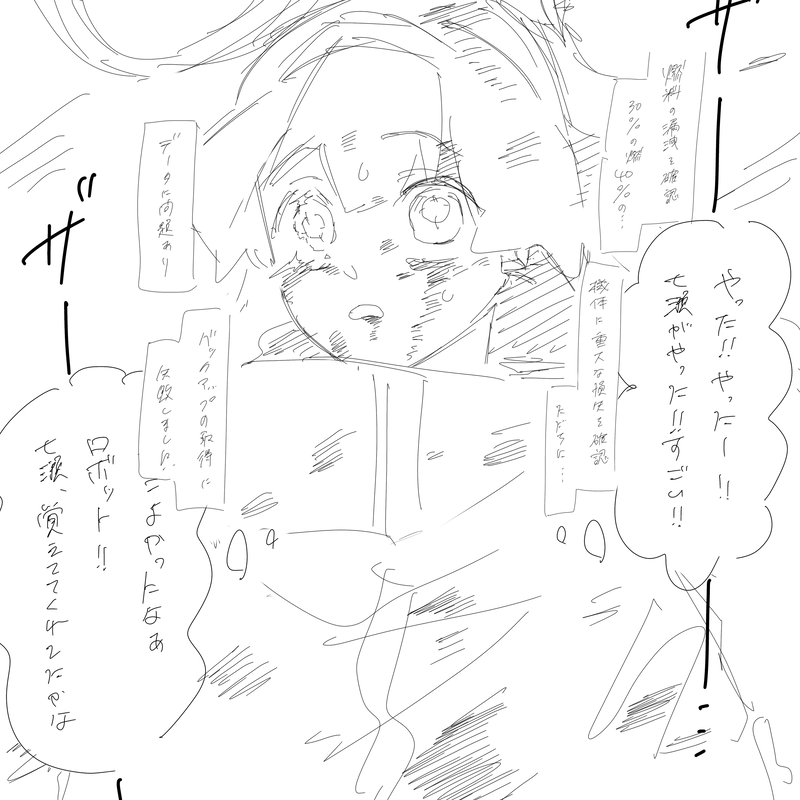 ザ
燃料の漏洩を確認
30%の燃
40%の…
やった!!やったー!!
七瀬がやった!!すごい!!
機体に重大な損失を確認
ただちに…
データに問題あり
バックアップの取得に
失敗しました。
ザ
よかったなぁ
ロボット!!
七瀬、覚えててくれてたかは